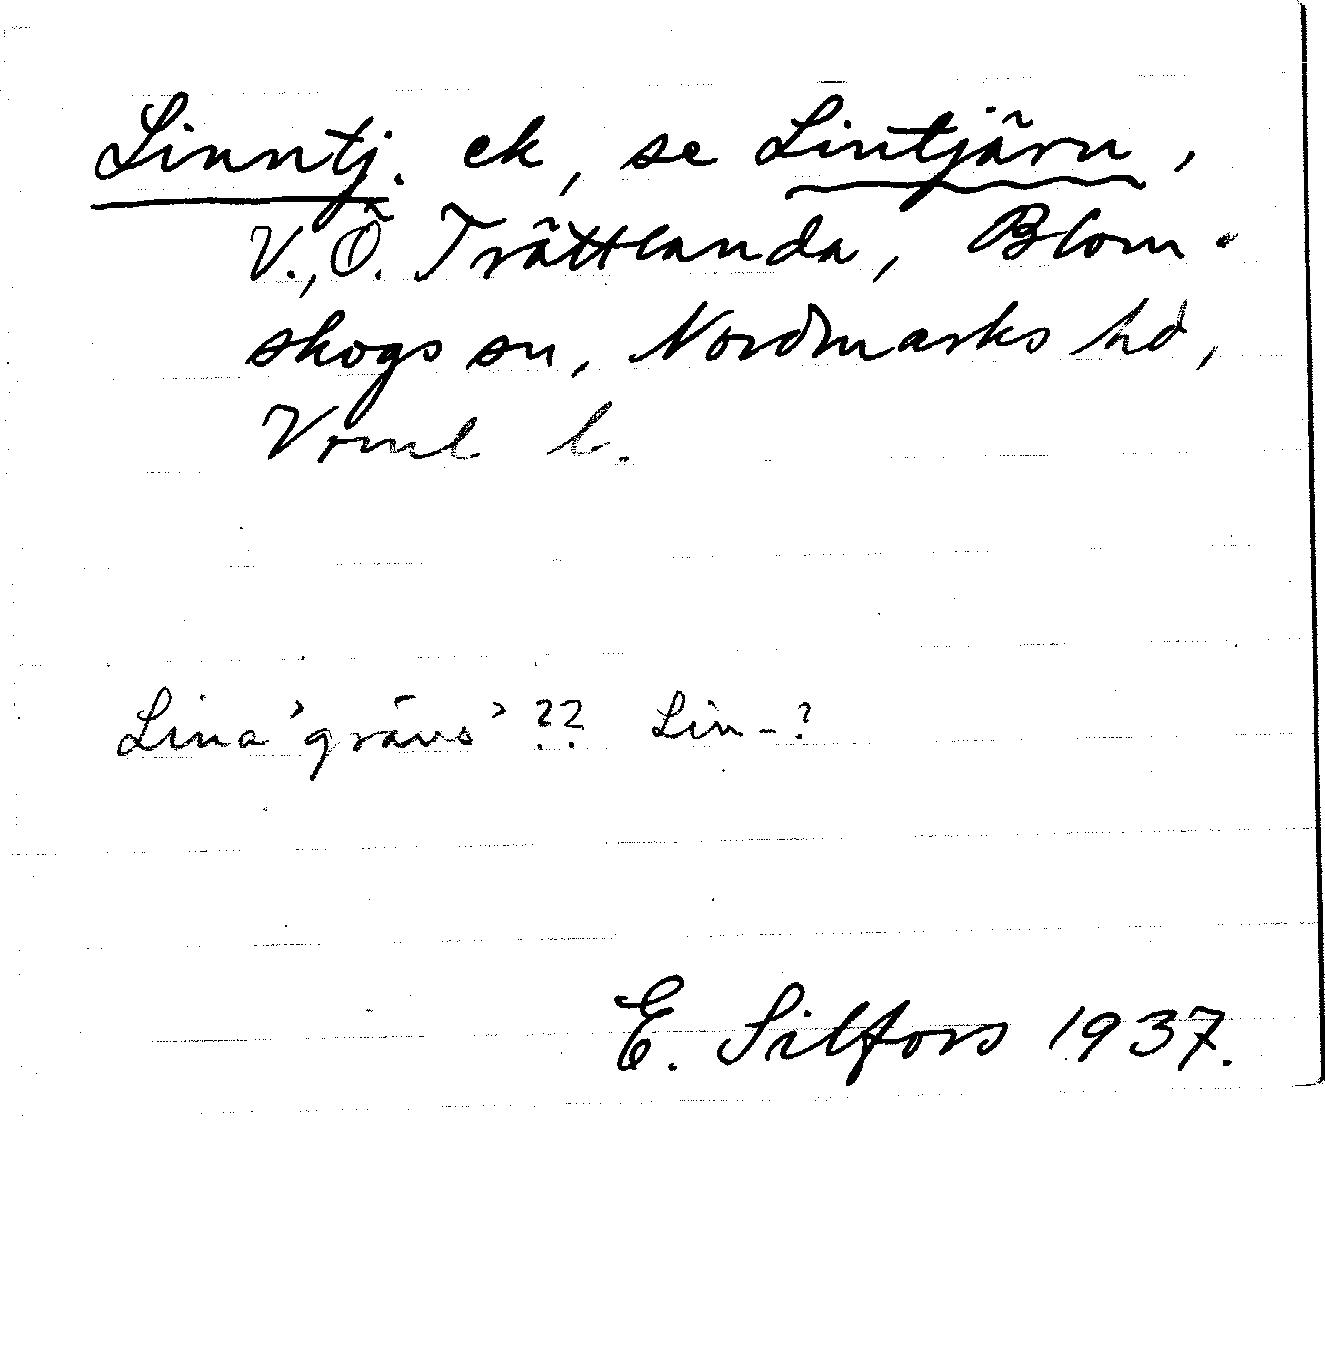 Linntj. ek, se Lintjärn,
V., Ö. Trättlanda, Blom-
skogs sn, Nordmarks hd,
Vrml l.
Lina 'gräns' ?? Lin-?
E. Silfors 1937.